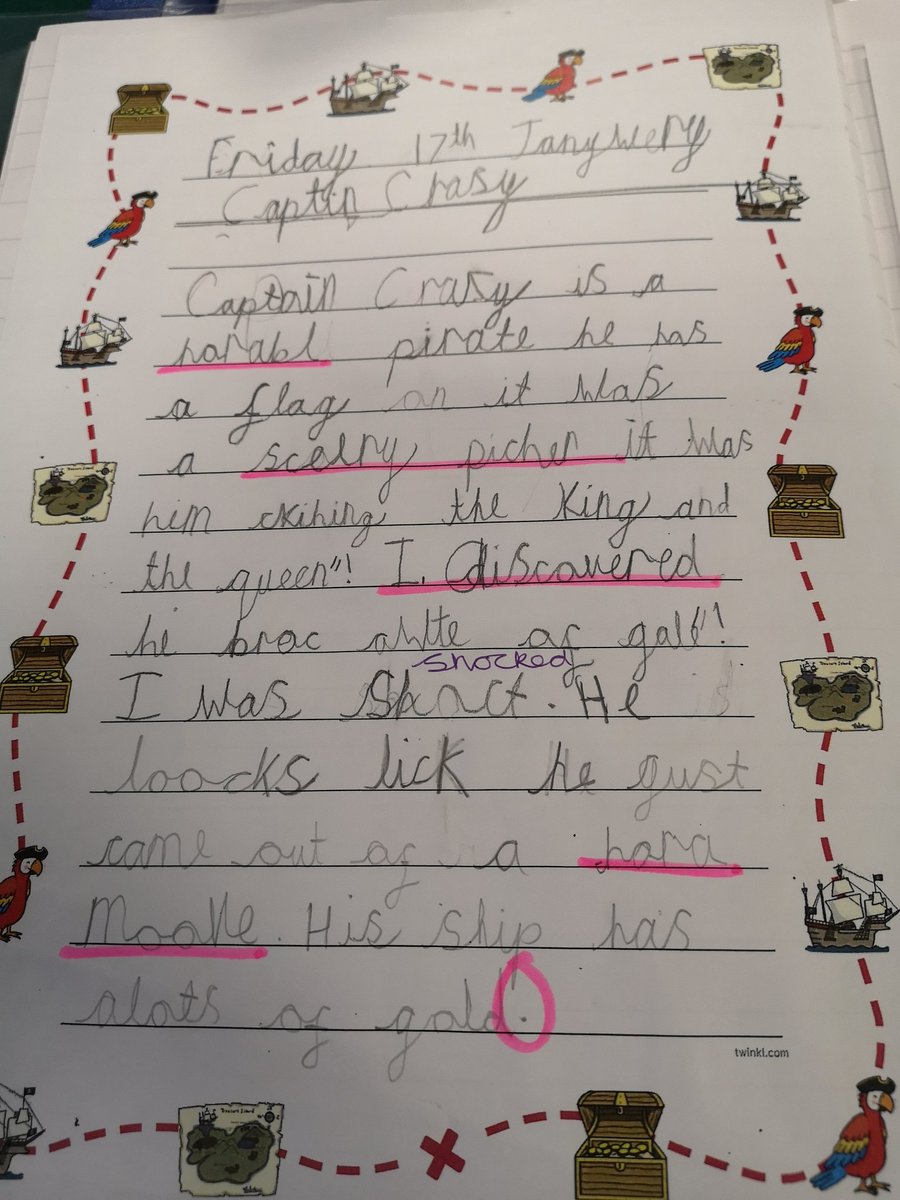 Friday 17th Janywery
Captin Crasy
Captain Crasy is a
horabl pirate he has
a flag on it was
a scelry picher it was
him ckihing the King and
the queen"! I discovered
he brac ahlte of gold"!
shocked
I was Shoct. He
loocks lick he gust
came out of a hora
Moove. His ship has
alots of gold!
twinkl.com